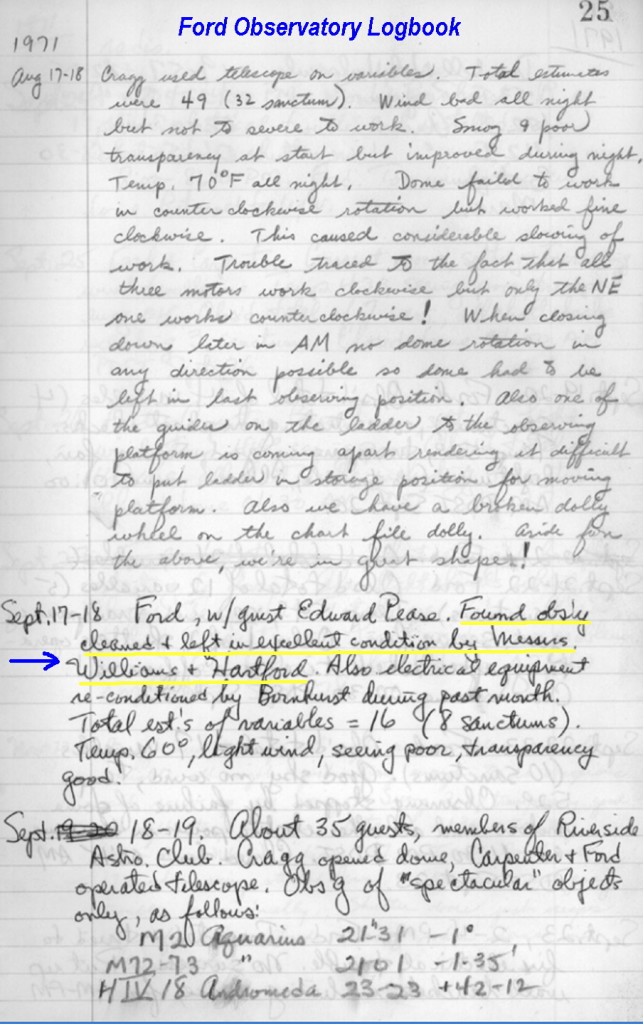 25
Ford Observatory Logbook
1971
Aug 17-18 Cragg used telescope on variables. Total estimates
were 49 (32 sanctum). Wind bad all night
but not to severe to work. Smog & poor
transparency at start but improved during night.
Temp. 70°F all night. Dome failed to work
in counter clockwise rotation but worked fine
clockwise. This caused considerable slowing of
work. Trouble traced to the fact that all
three motors work clockwise but only the NE
one works counterclockwise! When closing
down later in AM no dome rotation in
any direction possible so dome had to be
left in last observing position. Also one of
the guides on the ladder to the observing
platform is coming apart rendering it difficult
to put ladder in storage position for moving
platform. Also we have a broken dolly
wheel on the chart file dolly. Aside from
the above, we're in great shape!
Sept. 17-18 Ford, w/guest Edward Pease. Found obs'y
cleaned & left in excellent condition by Messrs.
Williams & Hartford. Also electrical equipment
re-conditioned by Bornhurst during past month.
Total est's of variables = 16 (8 sanctums).
Temp. 60°, light wind, seeing poor, transparency
good.
Sept. 18-19. About 35 guests, members of Riverside
Astro. Club. Cragg opened dome, Carpenter & Ford
operated telescope. Obs'g of "spectacular" objects
only, as follows:
M2 Aquarius 21h31 -1°
M72-73 " 2101 -1-35'
H IV 18 Andromeda 23-23 +42-12